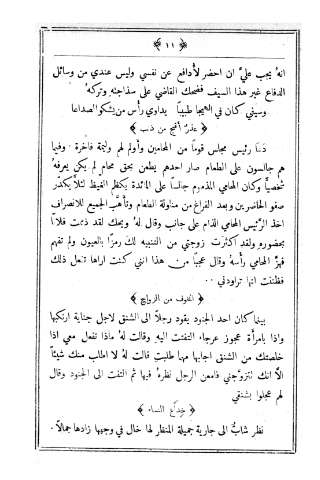 ﴿ ١١ ﴾
انهُ يجب عليَّ ان احضر لأدافع عن نفسي وليس عندي من وسائل
الدفاع غير هذا السيف فضحك القاضي على سذاجته وتركهُ
وسيفي كان في الهيجا طبيباً يداوي رأس من يشكو الصداعا
﴿ عذرٌ أقبح من ذنب ﴾
دعا رئيس مجلس قوماً من المحامين وأولم لهم وليمة فاخرة . وفيما
هم جالسون على الطعام صار احدهم يطعن بحق محام لم يكن يعرفهُ
شخصياً وكان المحامي المذموم جالساً على المائدة يكظم الغيظ لئلا يكدر
صفو الحاضرين وبعد الفراغ من مناولة الطعام وتأهَّب الجميع للانصراف
اخذ الرئيس المحامي الذام على جانب وقال لهُ ويحك لقد ذممت فلاناً
بحضوره ولقد اكثرت زوجتي من التنبيه لك رمزاً بالعيون ولم تفهم
فهزَّ المحامي رأسهُ وقال عجباً من هذا انني كنت اراها تفعل ذلك
فظننت انها تراودني .
﴿ الخوف من الزواج ﴾
بينما كان احد الجنود يقود رجلاً الى الشنق لاجل جناية ارتكبها
واذا بامرأة عجوز عرجاء التفتت اليه وقالت لهُ ماذا تفعل معي اذا
خلصتك من الشنق اجابها مهما طلبتِ قالت لهُ لا اطلب منك شيئاً
الاَّ انك تتزوجني فامعن الرجل نظرهُ فيها ثم التفت الى الجنود وقال
لهم عجلوا بشنقي
﴿ خداع النساء ﴾
نظر شابٌّ الى جارية جميلة المنظر لها خال في وجهها زادها جمالاً .